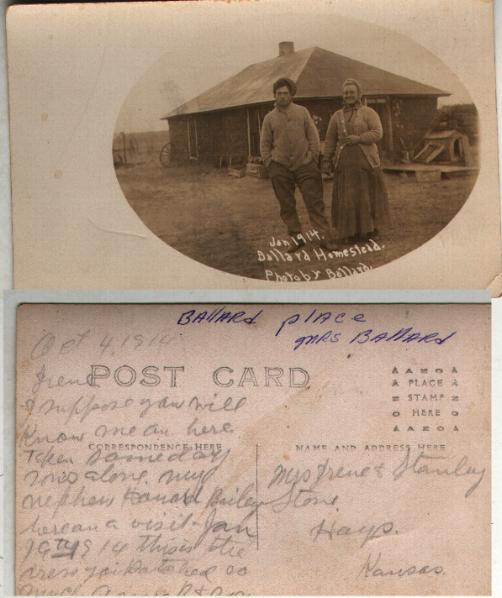 Jan 1914.
Ballard Homestead.
Photo by Ballard.
BALLARD place
MRS BALLARD
Oct 4, 1914
Irene
POST CARD
I suppose you will
Know me an here
CORRESPONDENCE HERE
Taken same day
alone. my
nephew Bailey
here an a visit Jan
1914 this is the
dress you
much
AZO
PLACE
STAMP
HERE
AZO
NAME AND ADDRESS HERE
Mrs Irene & Stanley
Stone
Hays.
Kansas.